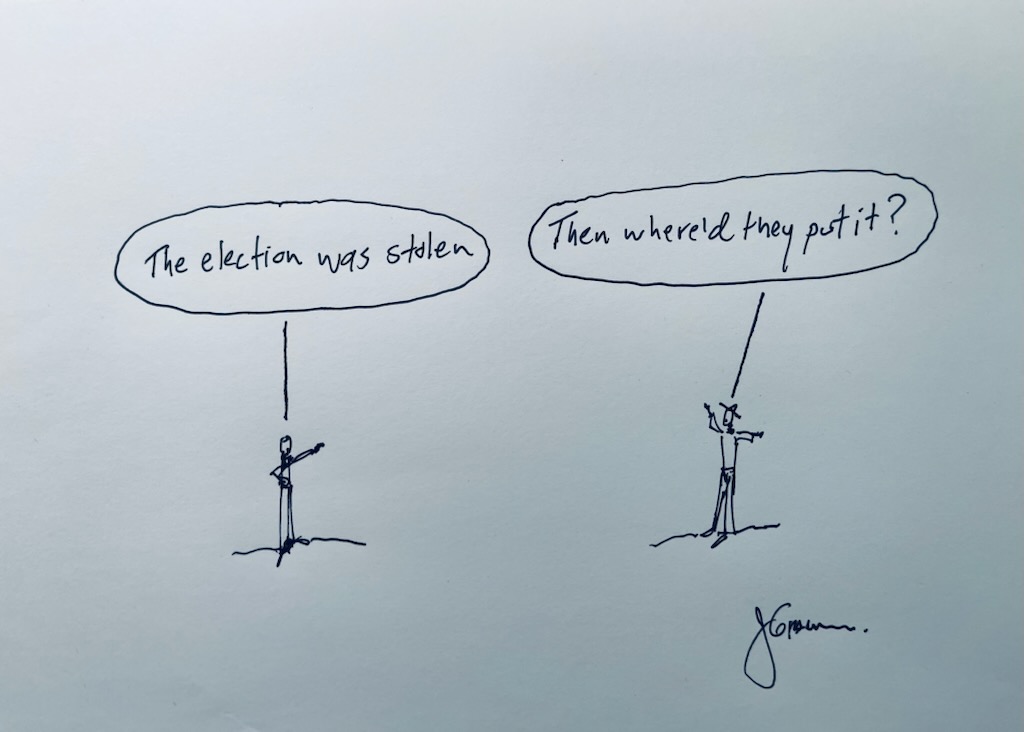 The election was stolen
Then where'd they put it?